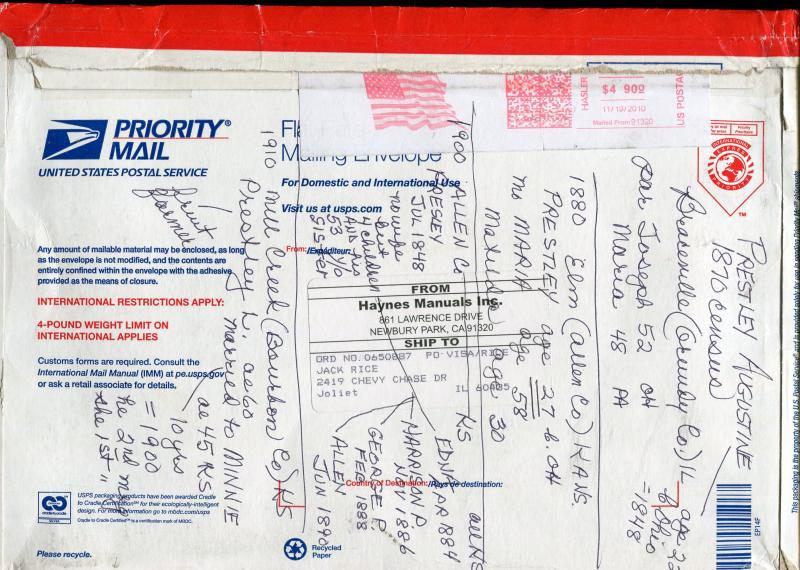 PRIORITY®
MAIL
UNITED STATES POSTAL SERVICE
Mailing Envelope
For Domestic and International Use
Visit us at usps.com
HASLER
$4 90⁰
11/19/2010
Mailed From 91320
US POSTA
INTERNATIONAL
™
Any amount of mailable material may be enclosed, as long
as the envelope is not modified, and the contents are
entirely confined within the envelope with the adhesive
provided as the means of closure.
INTERNATIONAL RESTRICTIONS APPLY:
4-POUND WEIGHT LIMIT ON
INTERNATIONAL APPLIES
Customs forms are required. Consult the
International Mail Manual (IMM) at pe.usps.gov
or ask a retail associate for details.
From:/Expéditeur:
FROM
Haynes Manuals Inc.
861 LAWRENCE DRIVE
NEWBURY PARK, CA 91320
SHIP TO
ORD NO. 0650887 PO VISA/RICE
JACK RICE
2419 CHEVY CHASE DR
Joliet IL 60435
Country of Destination:/Pays de destination:
USPS packaging products have been awarded Cradle
to Cradle Certification℠ for their ecologically-intelligent
design. For more information go to mbdc.com/usps
Cradle to Cradle Certified℠ is a certification mark of MBDC.
Please recycle.
Recycled
Paper
EP14F
PRESTLEY AUGUSTINE
1870 census)
Co.) IL
age 22
b Ohio
=1848
par Joseph 52 OH
Maria 48 PA
1880 Elm (Allen Co) KANS.
PRESTLEY age 27 b. OH
mo MARIA age 58
age 30
1900 ALLEN Co KS
PRESLEY
JUL 1848
no wife
but
4 children
AND his
53 y/o
SISTER
EDNA APR 1884
HARRISON D.
NOV 1886
GEORGE P.
FEB 1888
ALLEN
JUN 1890
all KS
1910 Mill Creek (Bourbon Co) KS
Prestley L. ae 60
married to MINNIE
ae 45 KS
10 yrs
= 1900
he 2nd m
she 1st "
fruit
farmer